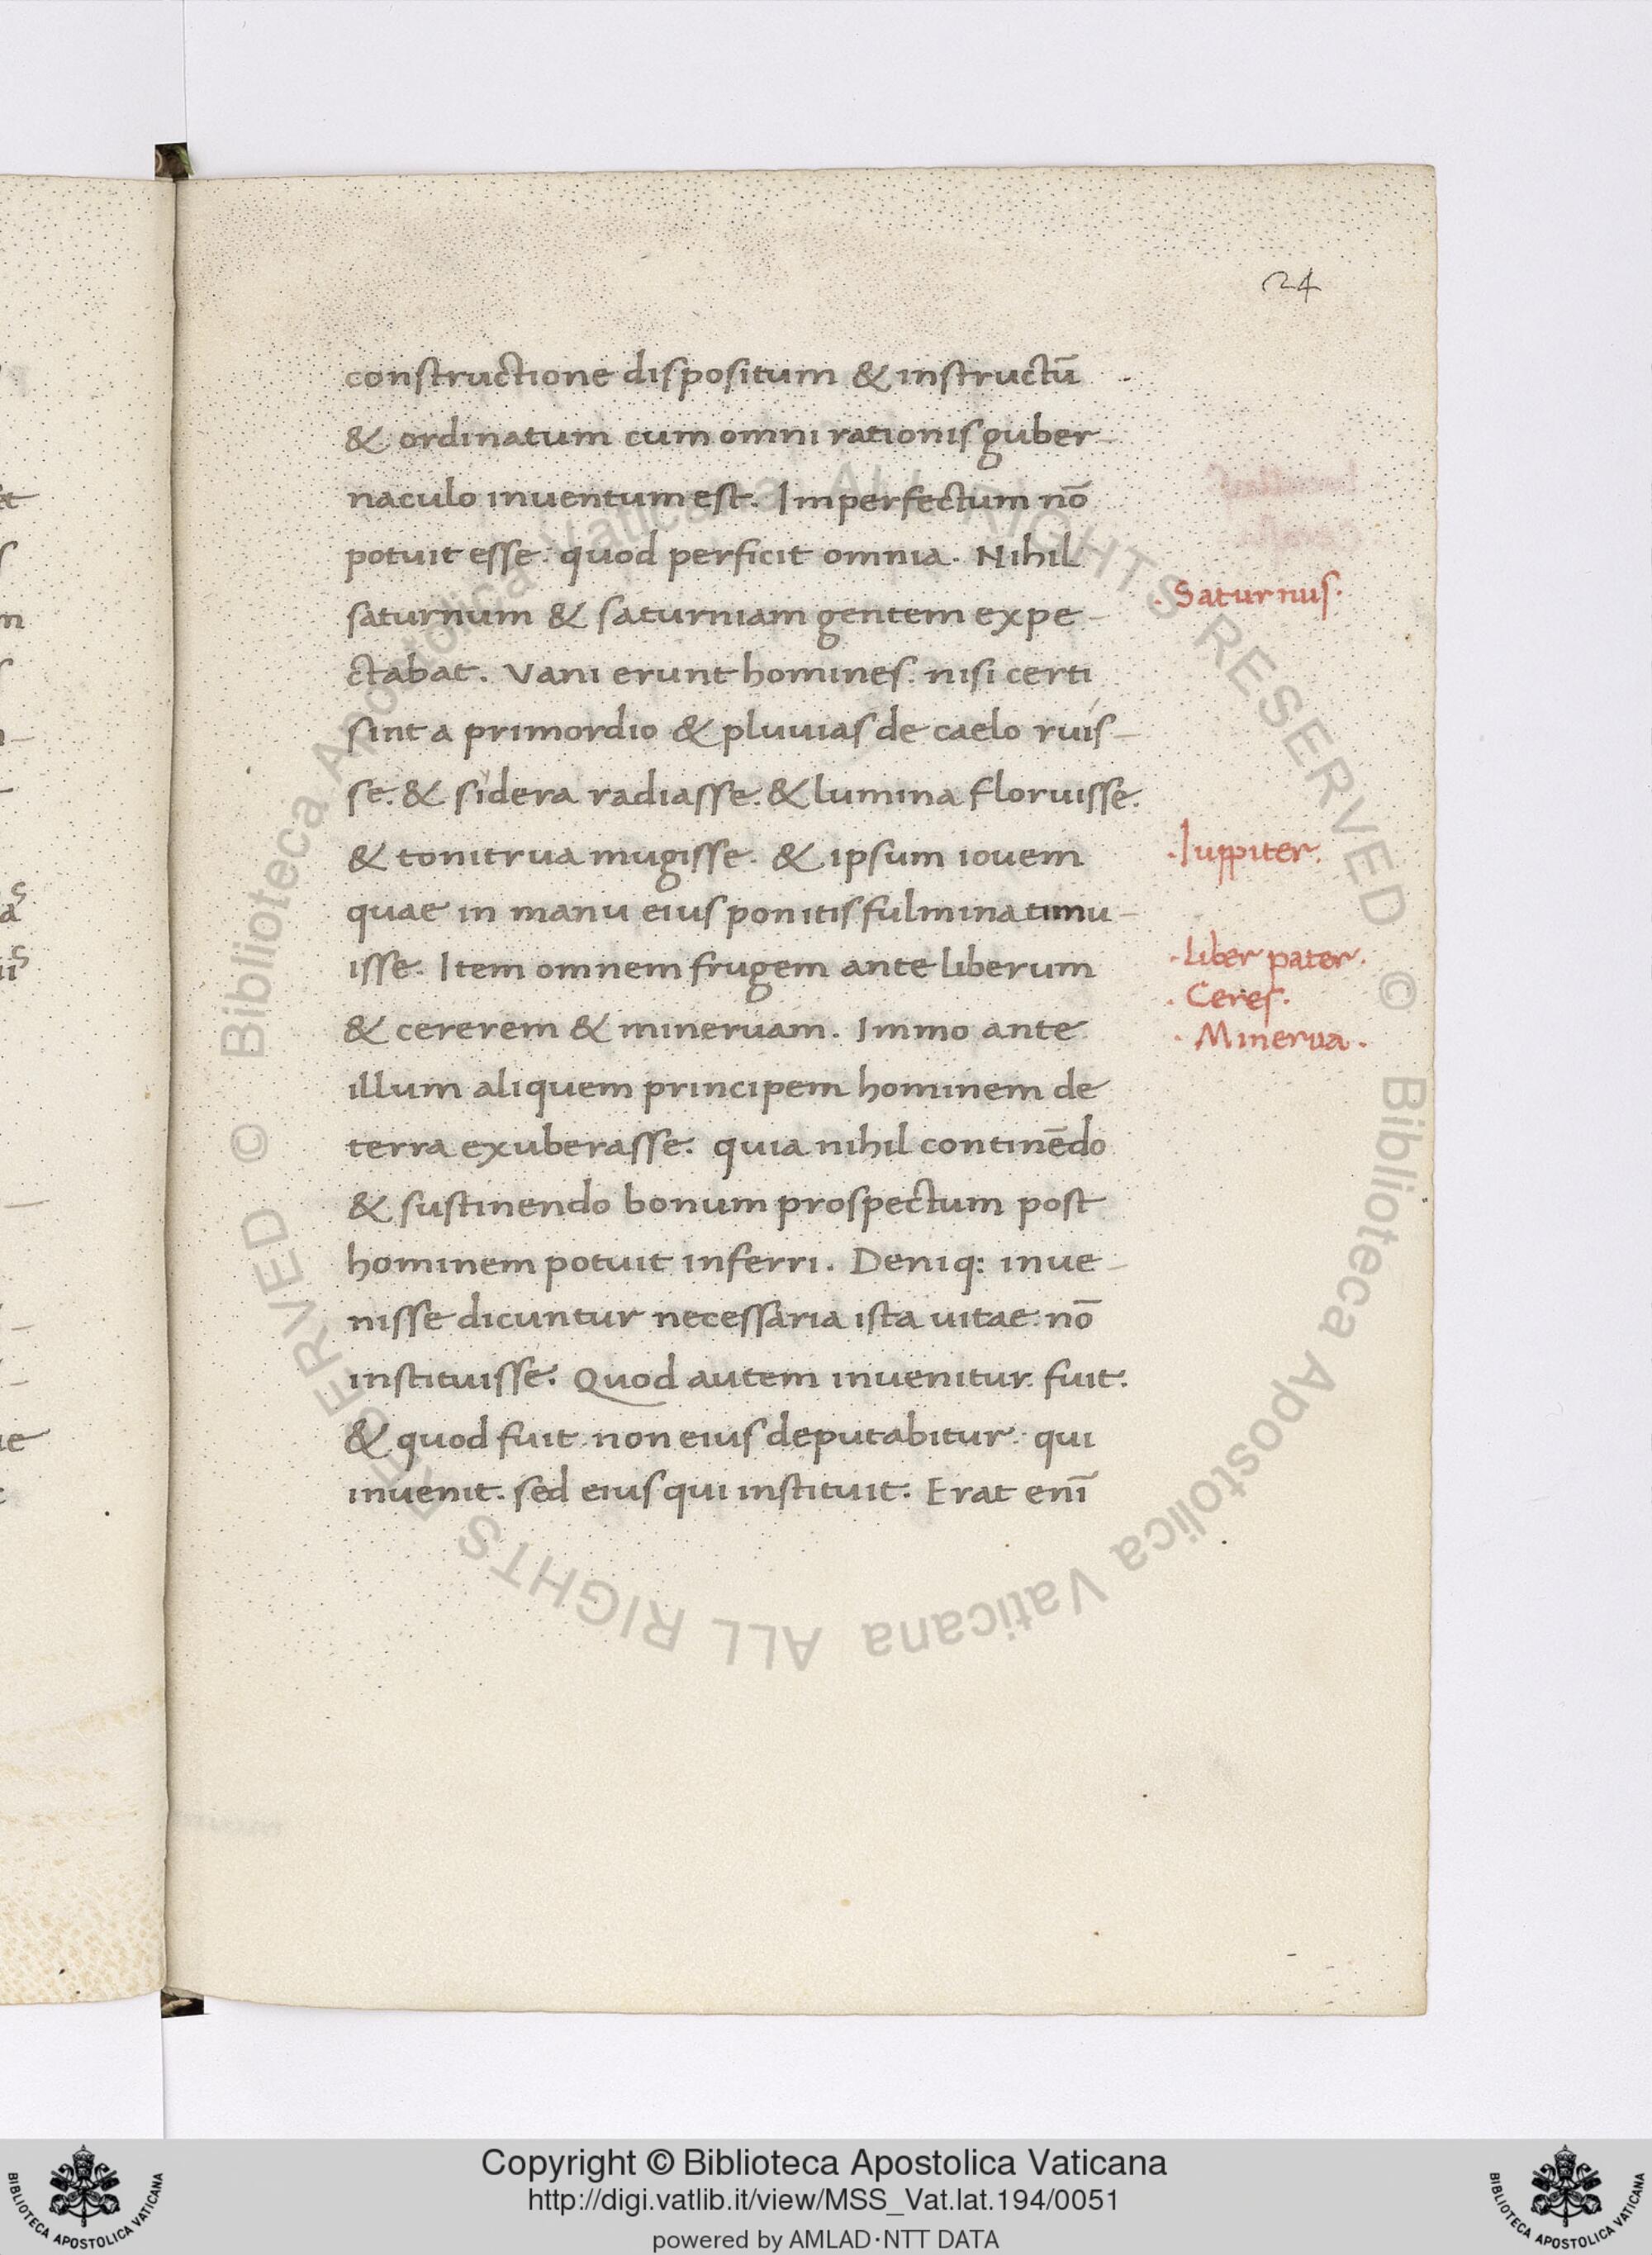 24
constructione dispositum & instructū
& ordinatum cum omni rationis guber-
naculo inuentum est. Imperfectum nō
potuit esse: quod perficit omnia. Nihil
saturnum & saturniam gentem expe-
ctabat. Vani erunt homines. nisi certi
sint a primordio & pluuias de caelo ruís-
se. & sidera radiasse. & lumina floruisse.
& tonitrua mugisse. & ipsum iouem
quae in manu eius ponitis fulmina timu-
isse. Item omnem frugem ante liberum
& cererem & mineruam. Immo ante
illum aliquem principem hominem de
terra exuberasse. quia nihil continēdo
& sustinendo bonum prospectum post
hominem potuit inferri. Deniq: inue-
nisse dicuntur necessaria ista uitae: nō
instituisse. Quod autem inuenitur. fuit.
& quod fuit. non eius deputabitur. qui
inuenit. sed eius qui instituit. Erat enī
. Saturnus.
. Iuppiter.
. Liber pater.
. Ceres.
. Minerua.
© Biblioteca Apostolica Vaticana ALL RIGHTS RESERVED © Biblioteca Apostolica Vaticana ALL RIGHTS RESERVED
Copyright © Biblioteca Apostolica Vaticana
http://digi.vatlib.it/view/MSS_Vat.lat.194/0051
powered by AMLAD·NTT DATA
BIBLIOTECA APOSTOLICA VATICANA
BIBLIOTECA APOSTOLICA VATICANA